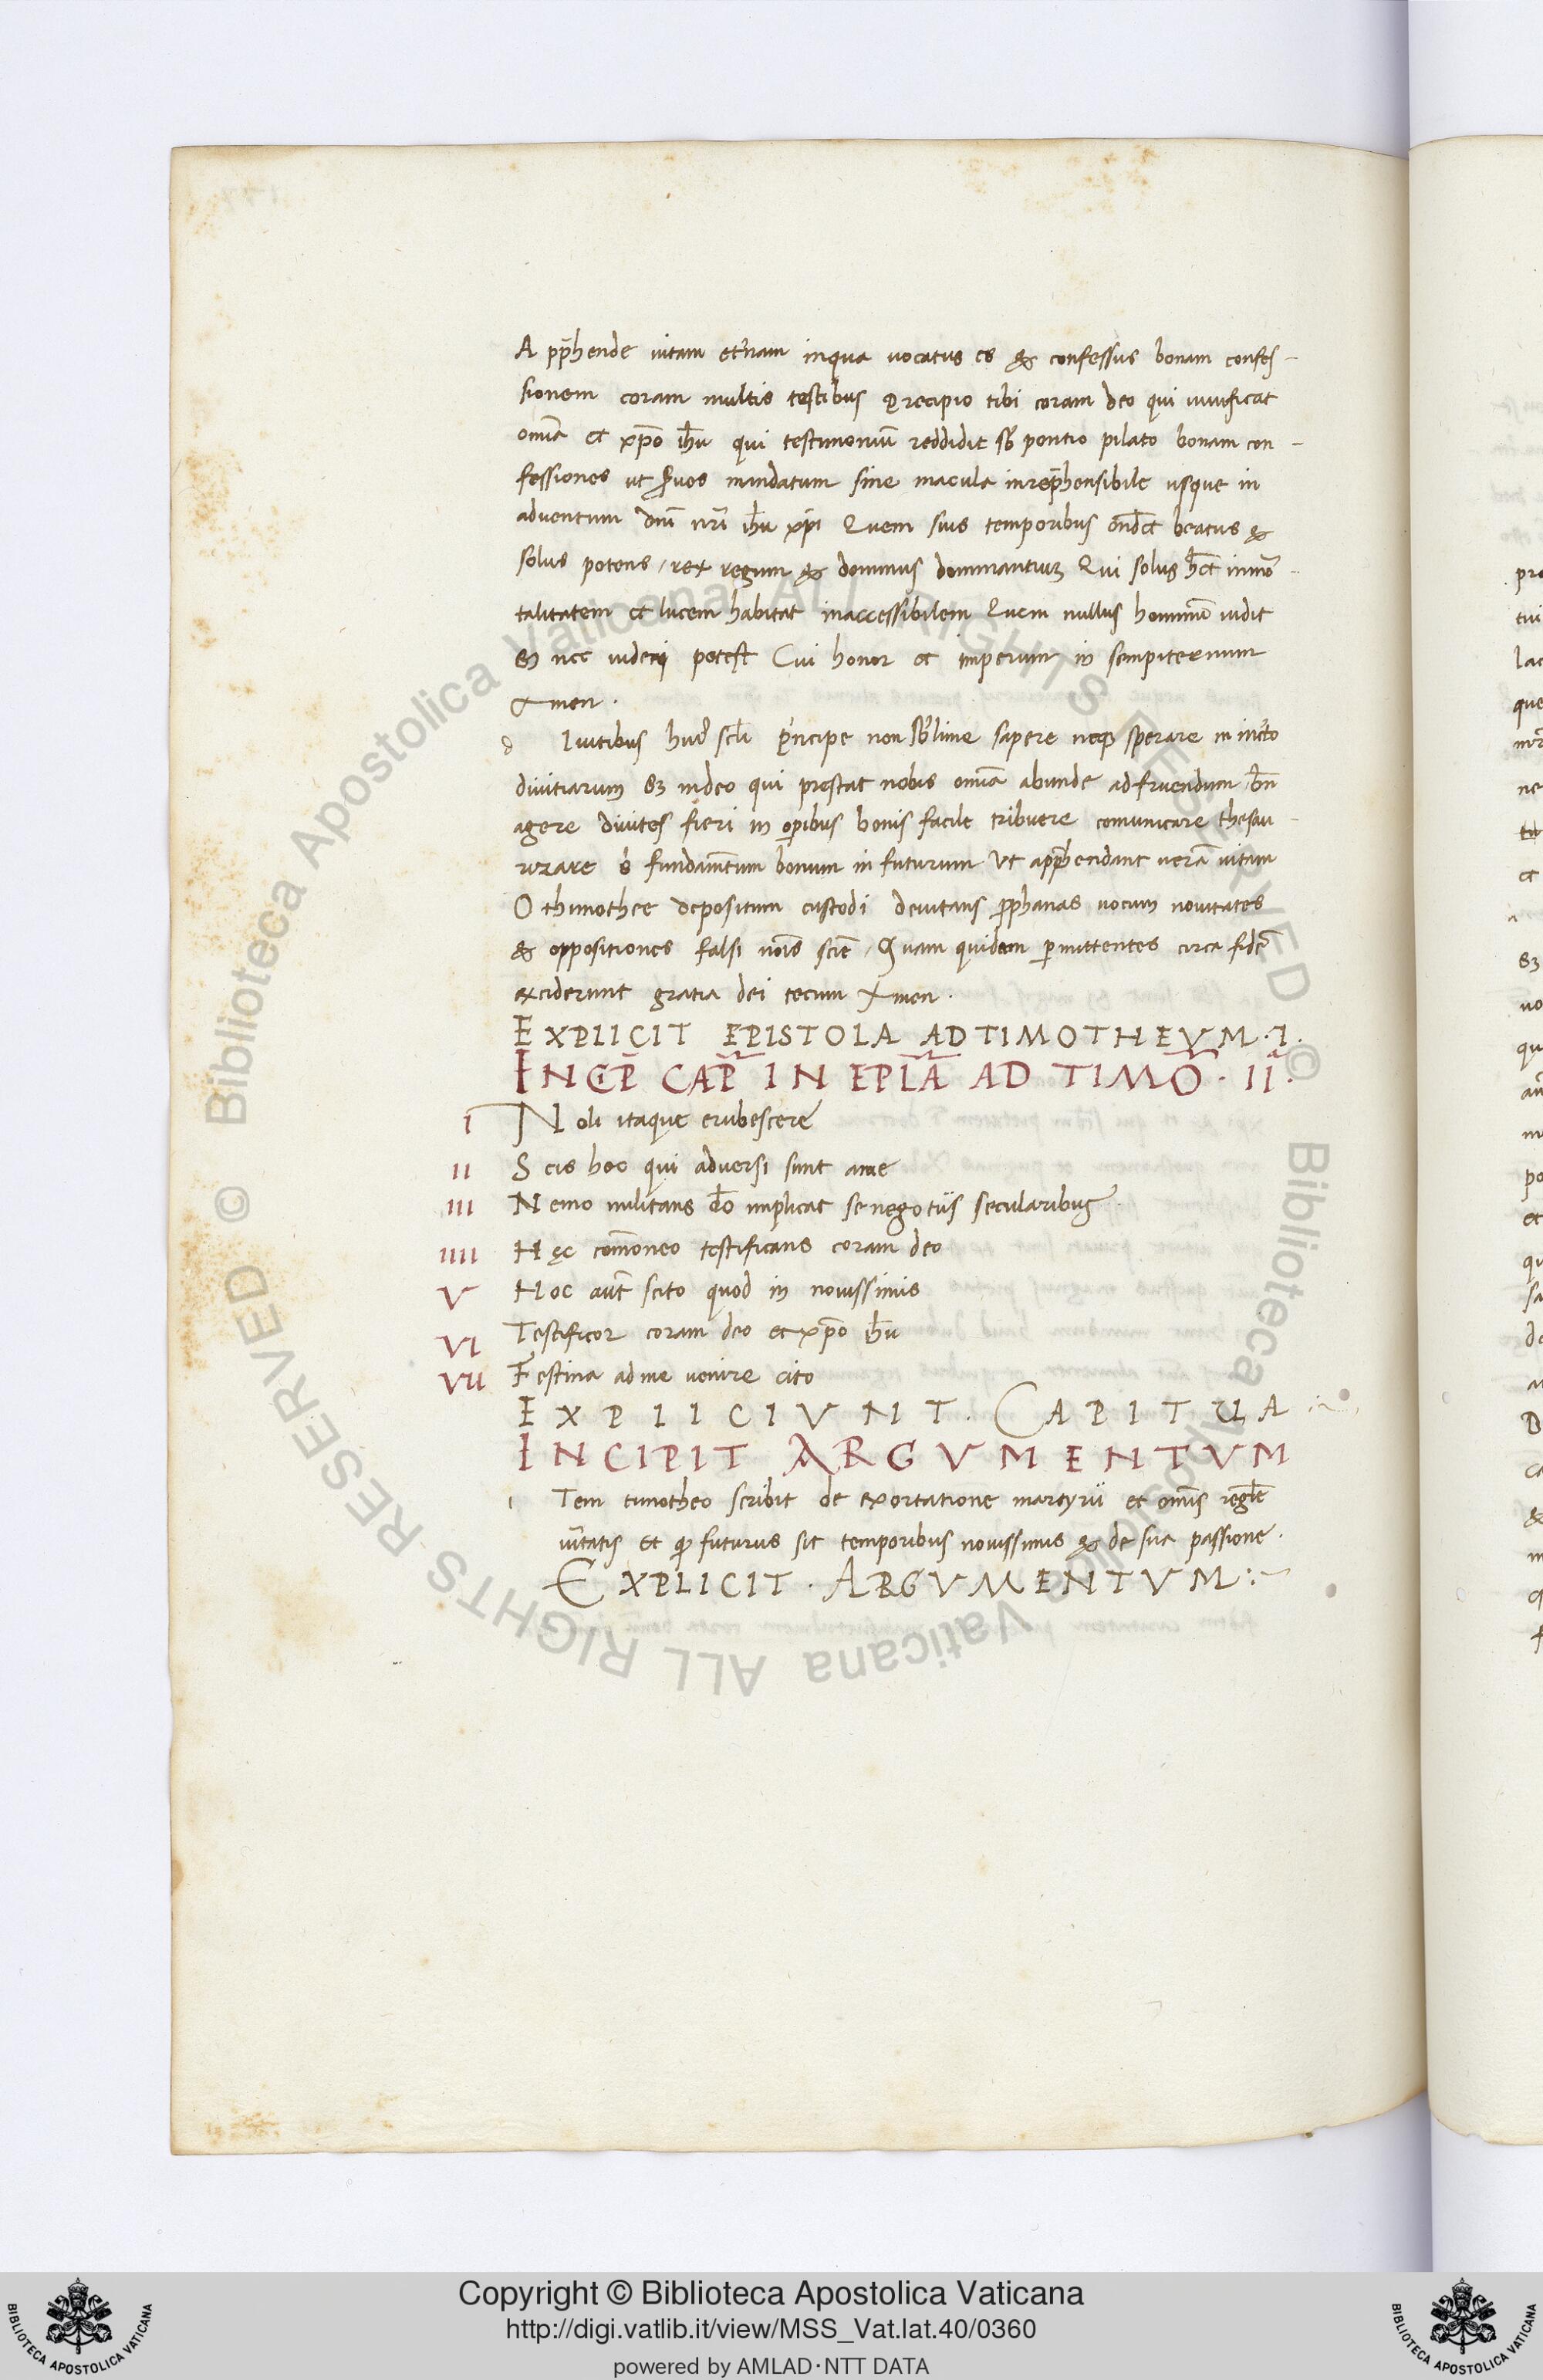 App̄hende uitam et̉nam inqua uocatus es & confessus bonam confes-
sionem coram multis testibus Precipio tibi coram deo qui uiuificat
omīa et xp̄o ih̄u qui testimoniū reddidit sb̄ pontio pilato bonam con-
fessiones ut ꝑuos mandatum sine macula inrep̄hensibile usque in
aduentum dn̄i nr̄i ih̄u xp̄i Quem suis temporibus ond̄et beatus &
solus potens, rex regum & dominus dominantiuꝫ Qui solus h̄et inmō
talitatem et lucem habitat inaccessibilem Quem nullus hominū uidit
sꝫ nec uideri potest Cui honor et imperium in sempiternum
Amen.
d Iuitibus hui᾽ scl̄i p̓ncipe non sb̓lime sapere neqꝫ sperare in inc̓to
diuitiarum sꝫ indeo qui prestat nobis omīa abunde adfruendum bn̄
agere diuites fieri in oꝑibus bonis facile tribuere comunicare thesau-
rizare s̓ fundam̄tum bonum in futurum Ut app̄hendant uerā uitam
O thimothee depositum custodi deuitans ꝓphanas uocum nouitates
& oppositiones falsi nōis sciē, Quam quidam ꝑmittentes circa fidē
exciderunt gratia dei tecum Amen.
EXPLICIT EPISTOLA AD TIMOTHEVM. I.
INCIP̄ CAP̄ IN EPLĀ AD TIMŌ. II.
I Noli itaque erubescere
II Scis hoc qui aduersi sunt ame
III Nemo militans d̄o implicat se negotiis secularibus
IIII Hęc com̄oneo testificans coram deo
V Hoc aut̄ scito quod in nouissimis
VI Testificor coram deo et xp̄o ih̄u
VII Festina ad me uenire cito
EXPLICIVNT. CAPITULA
INCIPIT ARGVMENTVM
i Tem timotheo scribit de exortatione martyrii et om̄is regl̄e
uītatis et qꝫ futurus sit temporibus nouissimis & de sua passione.
EXPLICIT. ARGVMENTVM:~
Copyright © Biblioteca Apostolica Vaticana
http://digi.vatlib.it/view/MSS_Vat.lat.40/0360
powered by AMLAD·NTT DATA